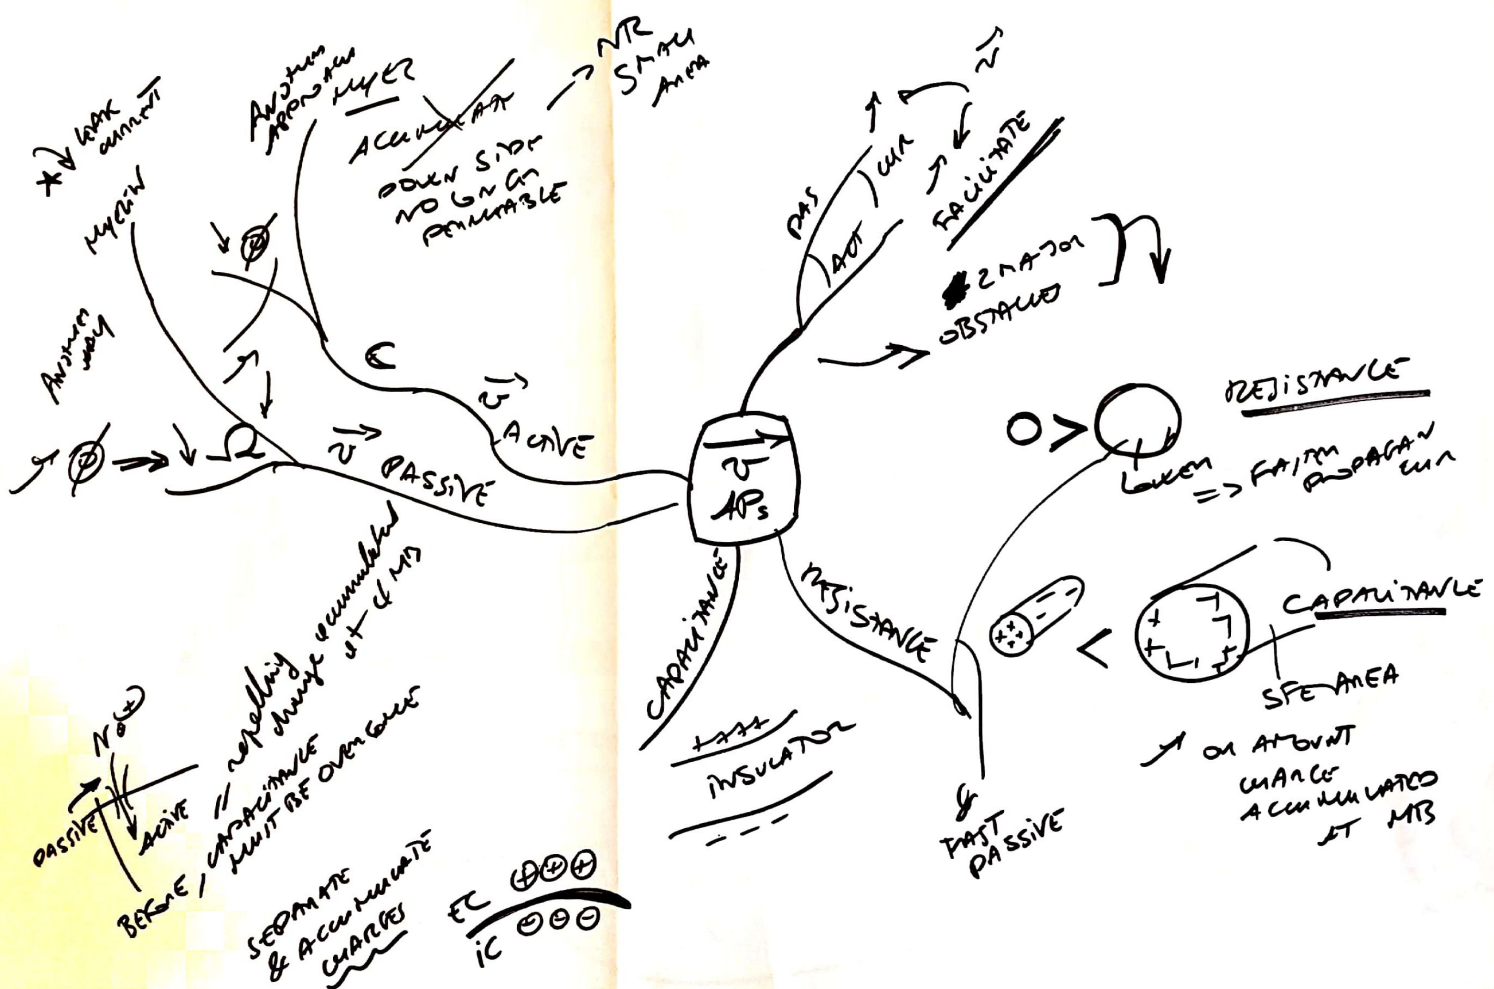 v
APs
FACILITATE
PAS
ACT
CUR
v
2 MAJOR
OBSTACLES
RESISTANCE
O >
LOWER
=> FASTER
PROPAGAN
CUR
CAPACITANCE
<
SFE AREA
OR AMOUNT
CHARGE
ACCUMULATED
AT MB
RESISTANCE
&
FAST
PASSIVE
CAPACITANCE
++++
INSULATOR
- - -
SEPARATE
& ACCUMULATE
CHARGES
EC + + +
IC - - -
BEFORE, CAPACITANCE
MUST BE OVERCOME
= repelling
charge accumulated
at MB
PASSIVE
ACTIVE
No (+)
v PASSIVE
Ω
Ø
ANOTHER
WAY
MYELIN
* LEAK
CURRENT
v
ACTIVE
C
Ø
ANOTHER
APPROACH
MYER
ACCUMULATE
DOWN SIDE
NO LONGER
PERMEABLE
NR
SMALL
AREA